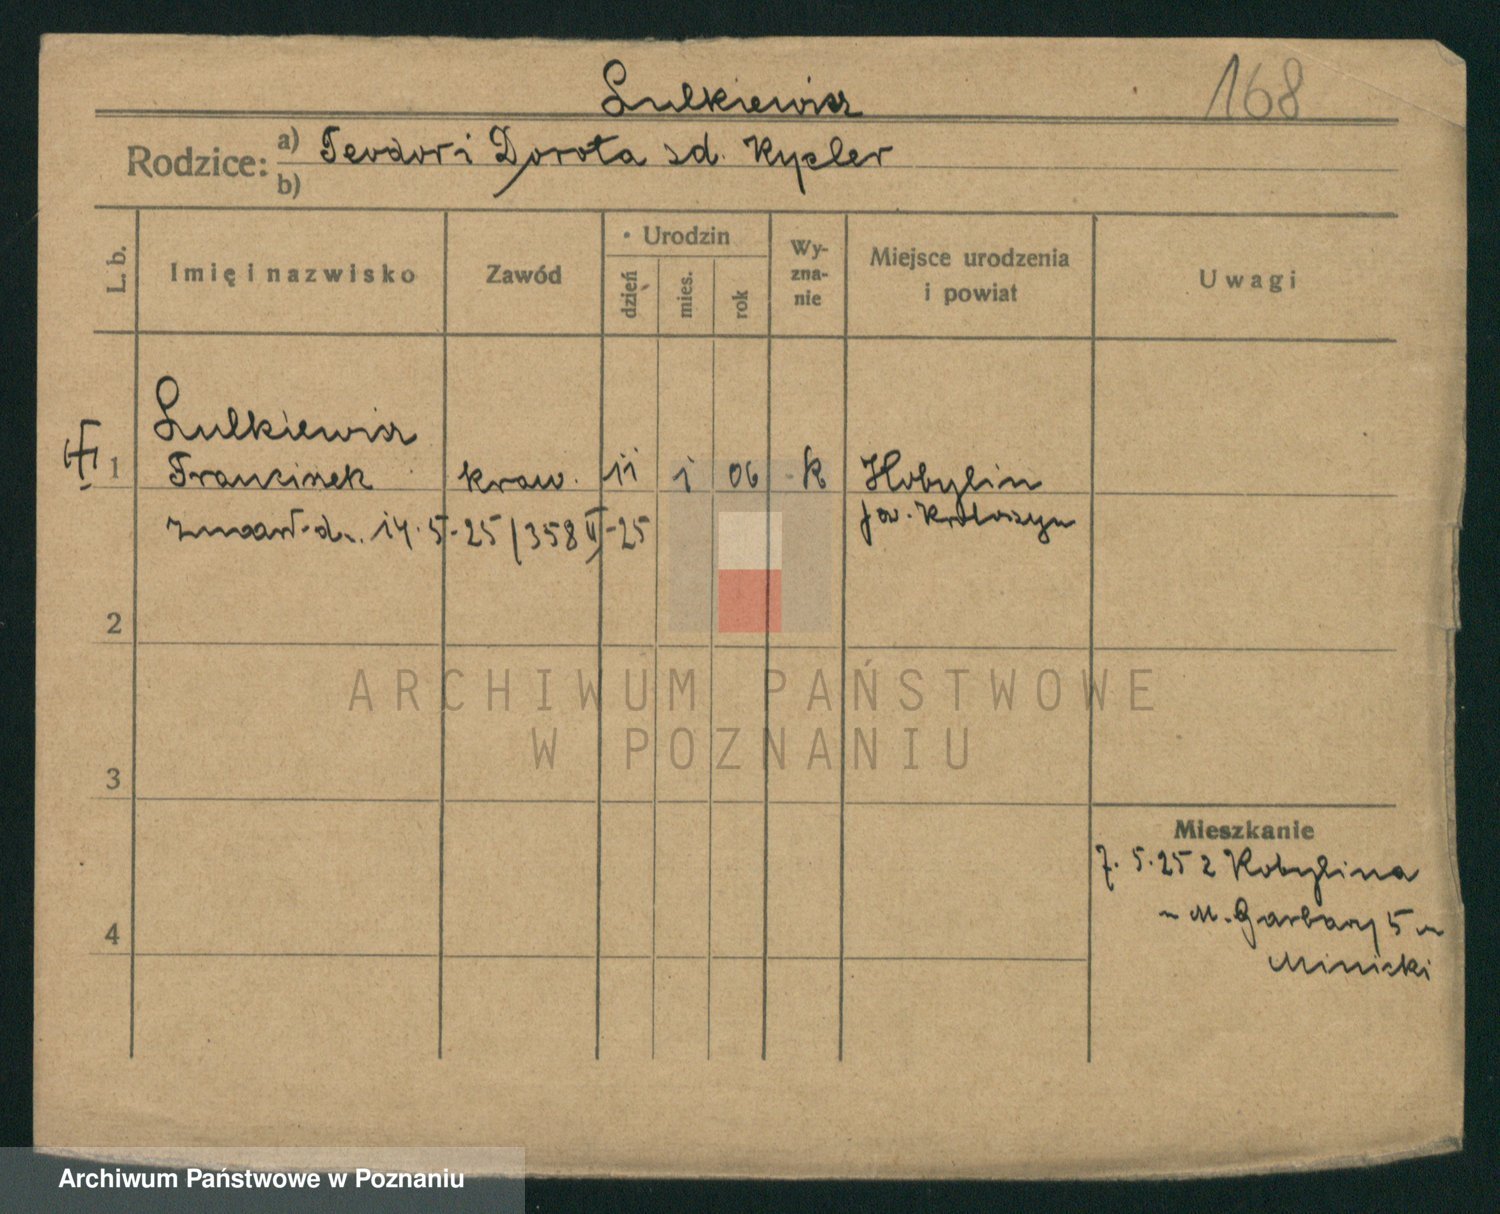 Lulkiewicz
168
Rodzice: a) Teodor i Dorota zd. Kysler
b)
L. b.
Imię i nazwisko
Zawód
Urodzin
dzień
mies.
rok
Wy-
zna-
nie
Miejsce urodzenia
i powiat
Uwagi
Lulkiewicz
1 Franciszek kraw. 11 1 06 k Kobylin
14.5.-25 (358 II)-25 pow. Krotoszyn
2
3
4
Mieszkanie
7.5.25 z Kobylina
M. Garbary 5 u
ARCHIWUM PAŃSTWOWE
W POZNANIU
Archiwum Państwowe w Poznaniu